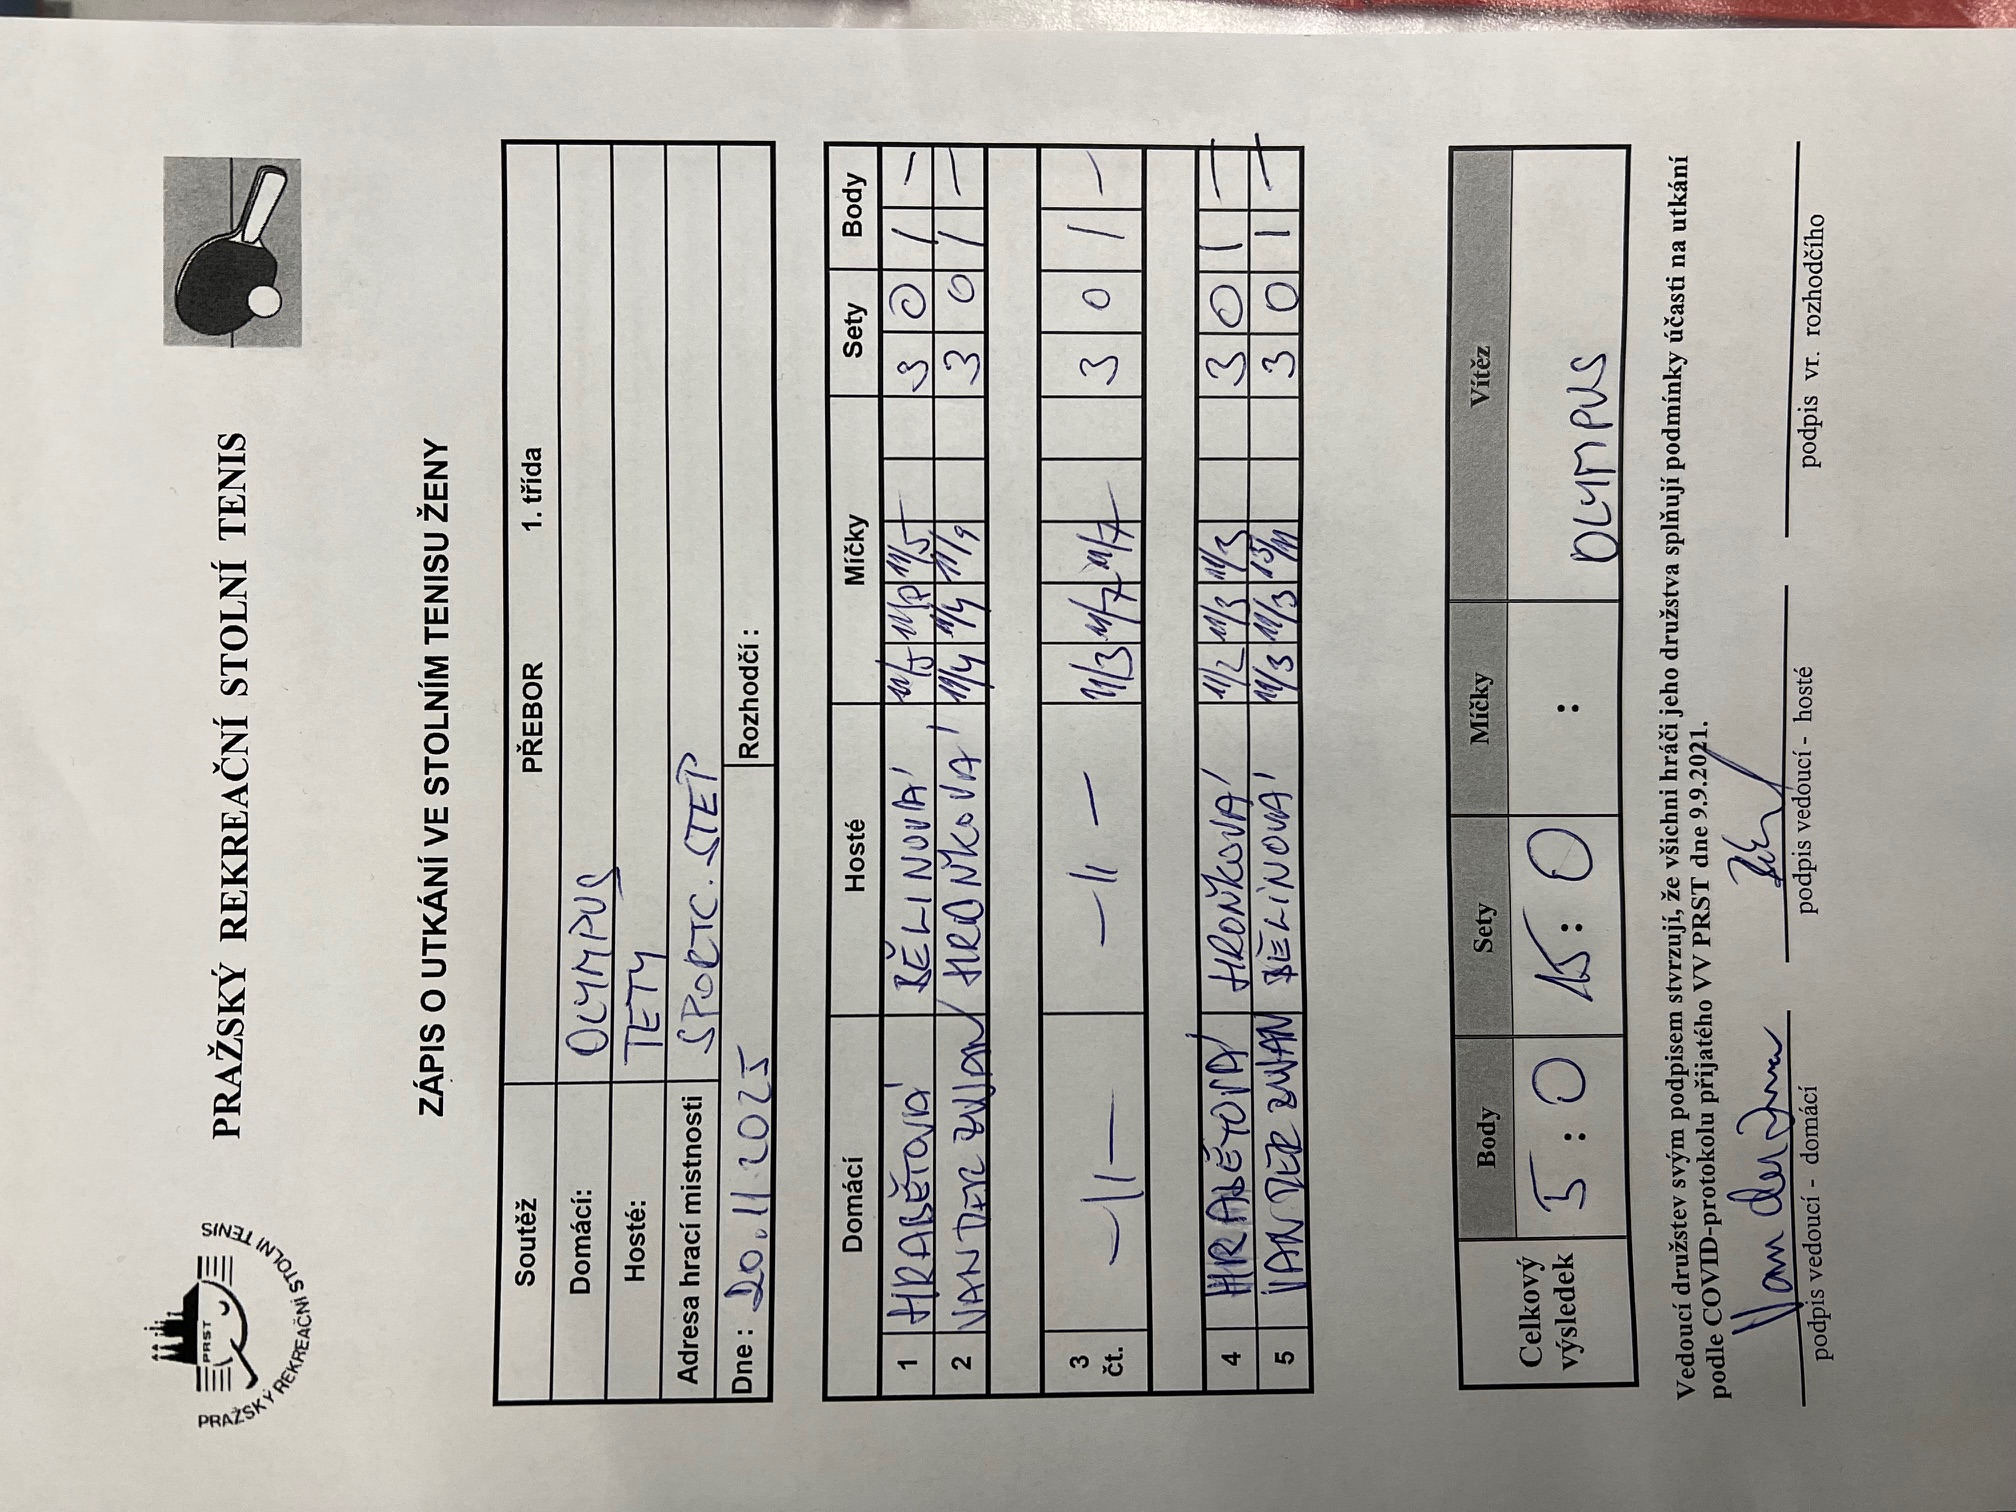 PRAŽSKÝ REKREAČNÍ STOLNÍ TENIS
PRST
PRAŽSKÝ REKREAČNÍ STOLNÍ TENIS
ZÁPIS O UTKÁNÍ VE STOLNÍM TENISU ŽENY
Soutěž PŘEBOR 1. třída
Domácí: OLYMPUS
Hosté: TETY
Adresa hrací mistnosti SPORTC. STEP
Dne : 20.11.2025 Rozhodčí :
Domácí Hosté Míčky Sety Body
1 HRABĚTOVÁ BĚLINOVÁ 11/5 3 0 1 –
2 VAN DER ZWAN HRONÍKOVÁ 11/4 11/4 11/9 3 0 1 –
3 čt. –11– –11– 11/3 11/7 11/7 3 0 1 –
4 HRABĚTOVÁ HRONÍKOVÁ 11/2 11/3 11/3 3 0 1 –
5 VAN DER ZWAN BĚLINOVÁ 11/3 11/3 13/11 3 0 1 –
Body Sety Míčky Vítěz
Celkový výsledek 5 : 0 15 : 0 : OLYMPUS
Vedoucí družstev svým podpisem stvrzují, že všichni hráči jeho družstva splňují podmínky účasti na utkání
podle COVID-protokolu přijatého VV PRST dne 9.9.2021.
podpis vedoucí - domácí podpis vedoucí - hosté podpis vr. rozhodčího